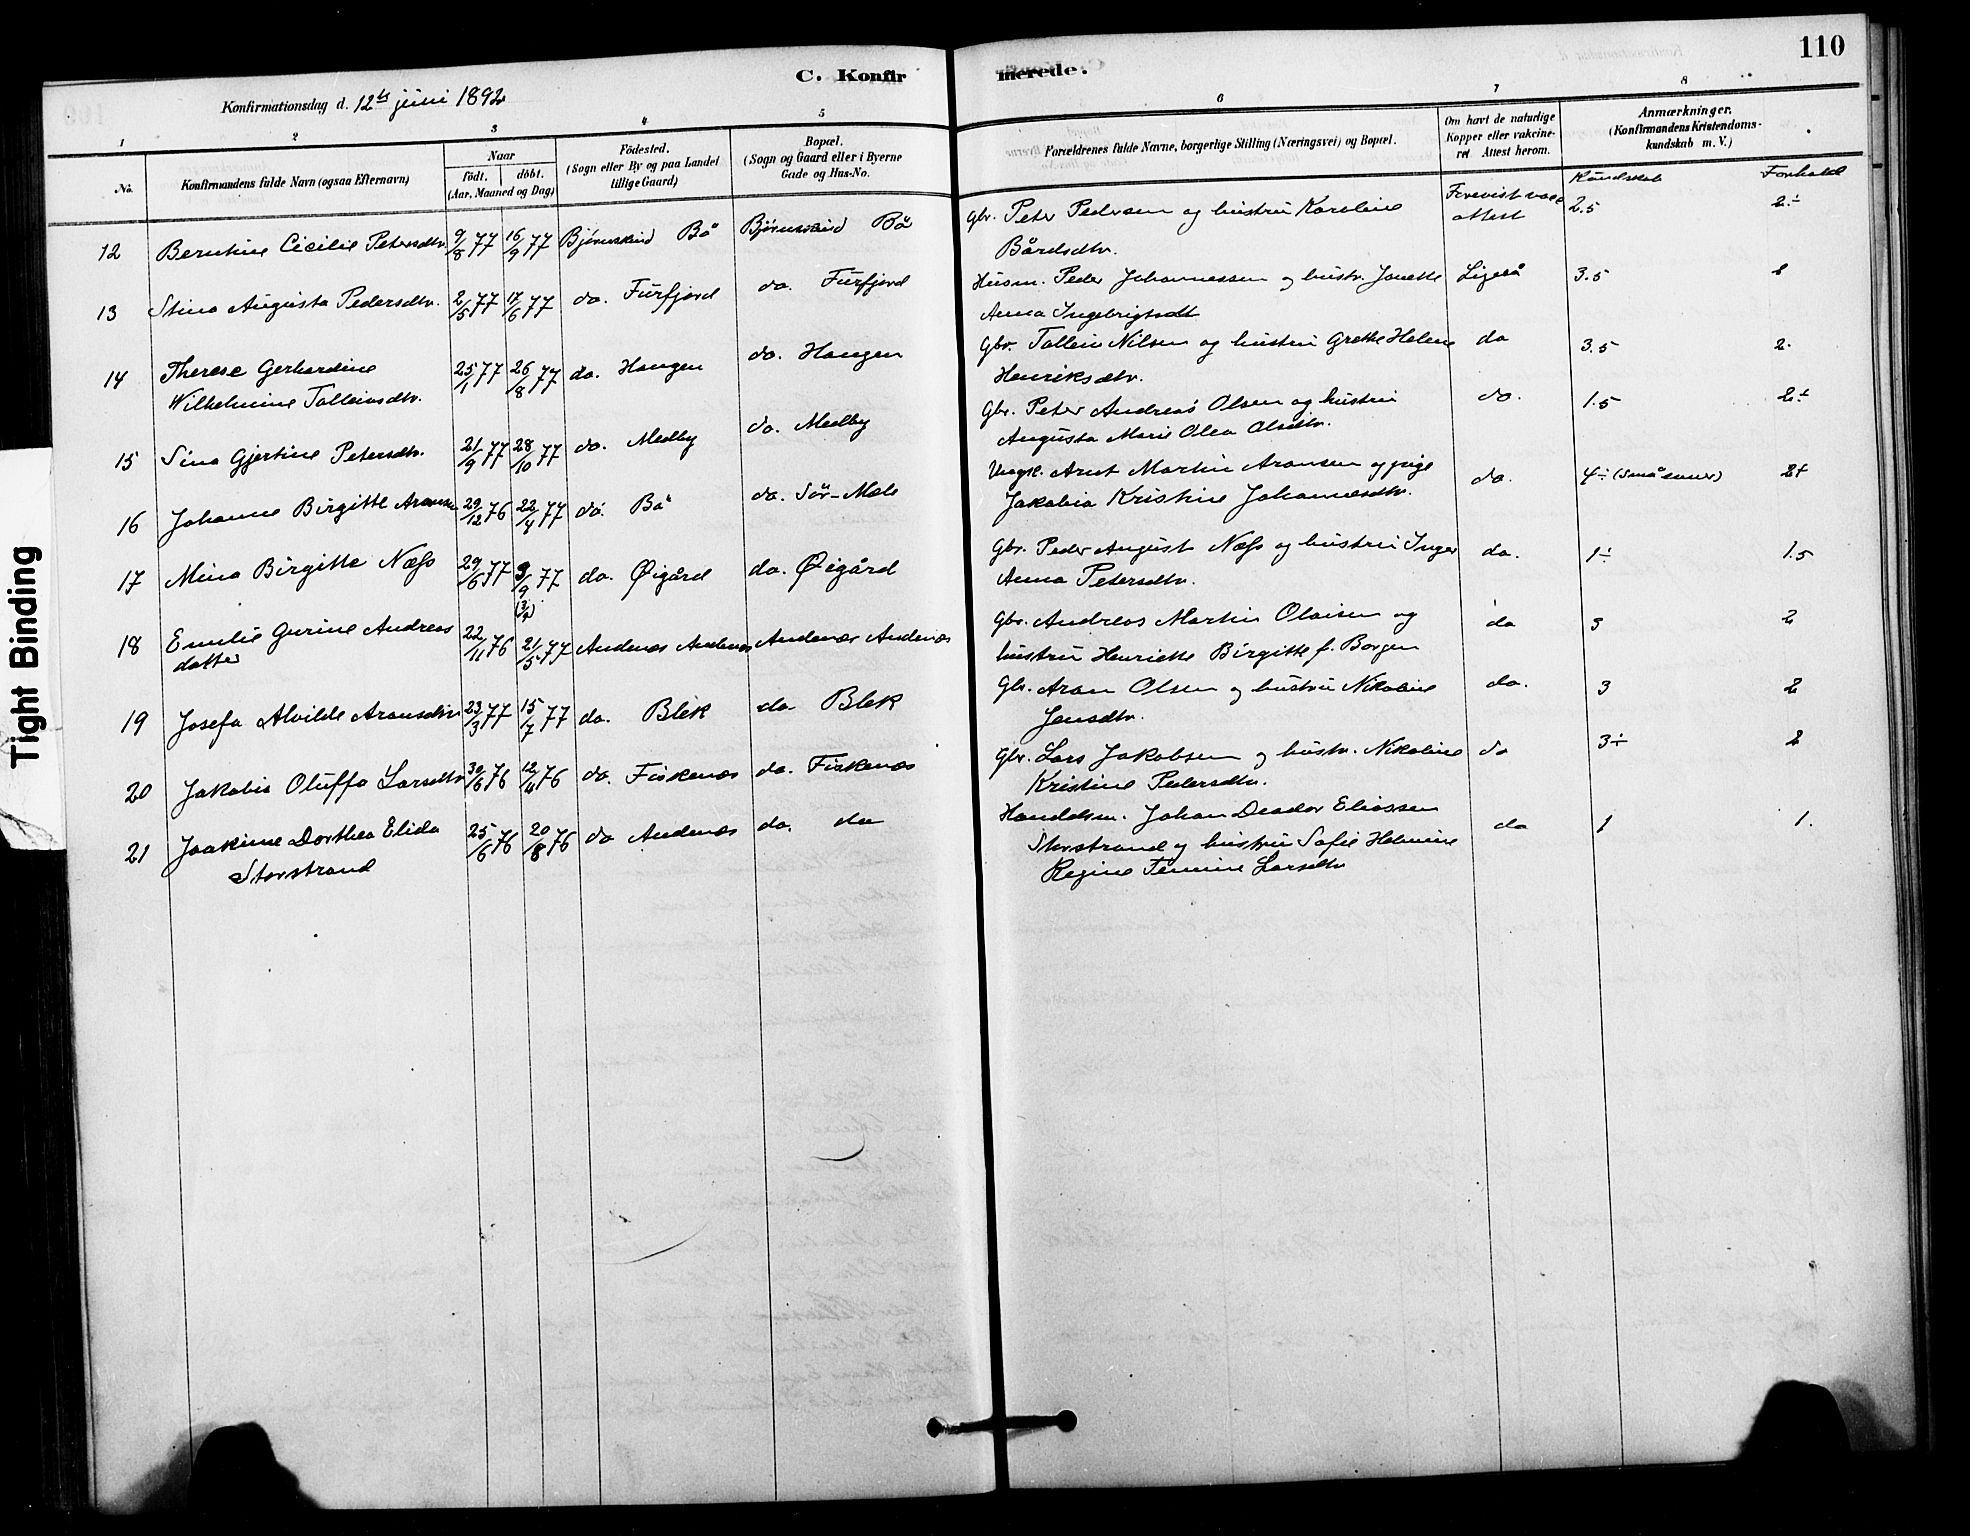 110
C. Konfir
merede.
Konfirmationsdag d. 12te juni 1892
1 2 3 4 5 6 7 8
No.
Konfirmandens fulde Navn (ogsaa Efternavn)
Naar
födt. döbt.
(Aar, Maaned og Dag)
Födested.
(Sogn eller By og paa Landet
tillige Gaard)
Bopæl.
(Sogn og Gaard eller i Byerne
Gade og Hus-No.
Forældrenes fulde Navne, borgerlige Stilling (Næringsvei) og Bopæl.
Om havt de naturlige
Kopper eller vakcine-
ret Attest herom.
Anmærkninger.
(Konfirmandens Kristendoms-
kundskab m. V.)
Kundskab Forhold
12 Berntine Cicilie Petersdtr. 9/8 77 16/9 77 Bjørnskind Bö Bjørnskind Bö Gbr. Peter Pedersen og hustru Karoline Forevist vacc 2.5 2÷
Bårdsdtr. attest
13 Stina Augusta Pedersdtr. 2/5 77 17/6 77 do. Furfjord do. Furfjord Husm. Peder Johannessen og hustr. Jonette Ligeså 3.5
Anna Ingebrigtsdt
14 Therese Gerhardine 25/1 77 26/8 77 do. Haugen do. Haugen Gbr. Tollein Nilsen og hustru Grethe Helene do 3.5 2.
Wilhelmine Tolleinsdtr. Henriksdtr.
15 Sina Gjertine Petersdtr. 21/9 77 28/10 77 do. Medby do. Medby Gbr. Peter Andreas Olsen og hustru do. 1.5 2÷
Augusta Marie Olea Olsdtr.
16 Johanne Birgitte Aronsen 29/12 76 22/4 77 do. Bö do. Sör-Mele Ungk. Arnt Martin Aronsen og pige do. 4÷ (små evner) 2+
Jakobia Kristine Johannesdtr.
17 Mina Birgitte Næss 29/6 77 9/9 77 do. Øigård do. Øigård Gbr. Peder August Næss og hustru Inger do. 1÷ 1.5
Anna Petersdtr.
18 Emilie Gurine Andreas 22/11 76 21/5 77 Andenæs Andenæs Andenæs Andenæs Gbr. Andreas Martin Olaisen og do 3 2
datter hustru Henriette Birgitte f. Borgen
19 Josefa Alvilde Aronsdtr 23/3 77 15/7 77 do. Blek do. Blek Gbr. Aron Olsen og hustru Nikoline do. 3 2
Jensdtr.
20 Jakobia Oluffa Larsdtr 30/6 76 do. Fiskenæs do. Fiskenæs Gbr. Lars Jakobsen og hustr. Nikoline do 3÷ 2
Kristine Pedersdtr.
21 Joakime Dorthea Elida 25/6 76 20/8 76 do Andenæs do. do Handelsm. Johan Deador Eliassen do 1 1.
Storstrand Storstrand og hustru Sofie Helmine
Regine Temine Larsdtr
Tight Binding